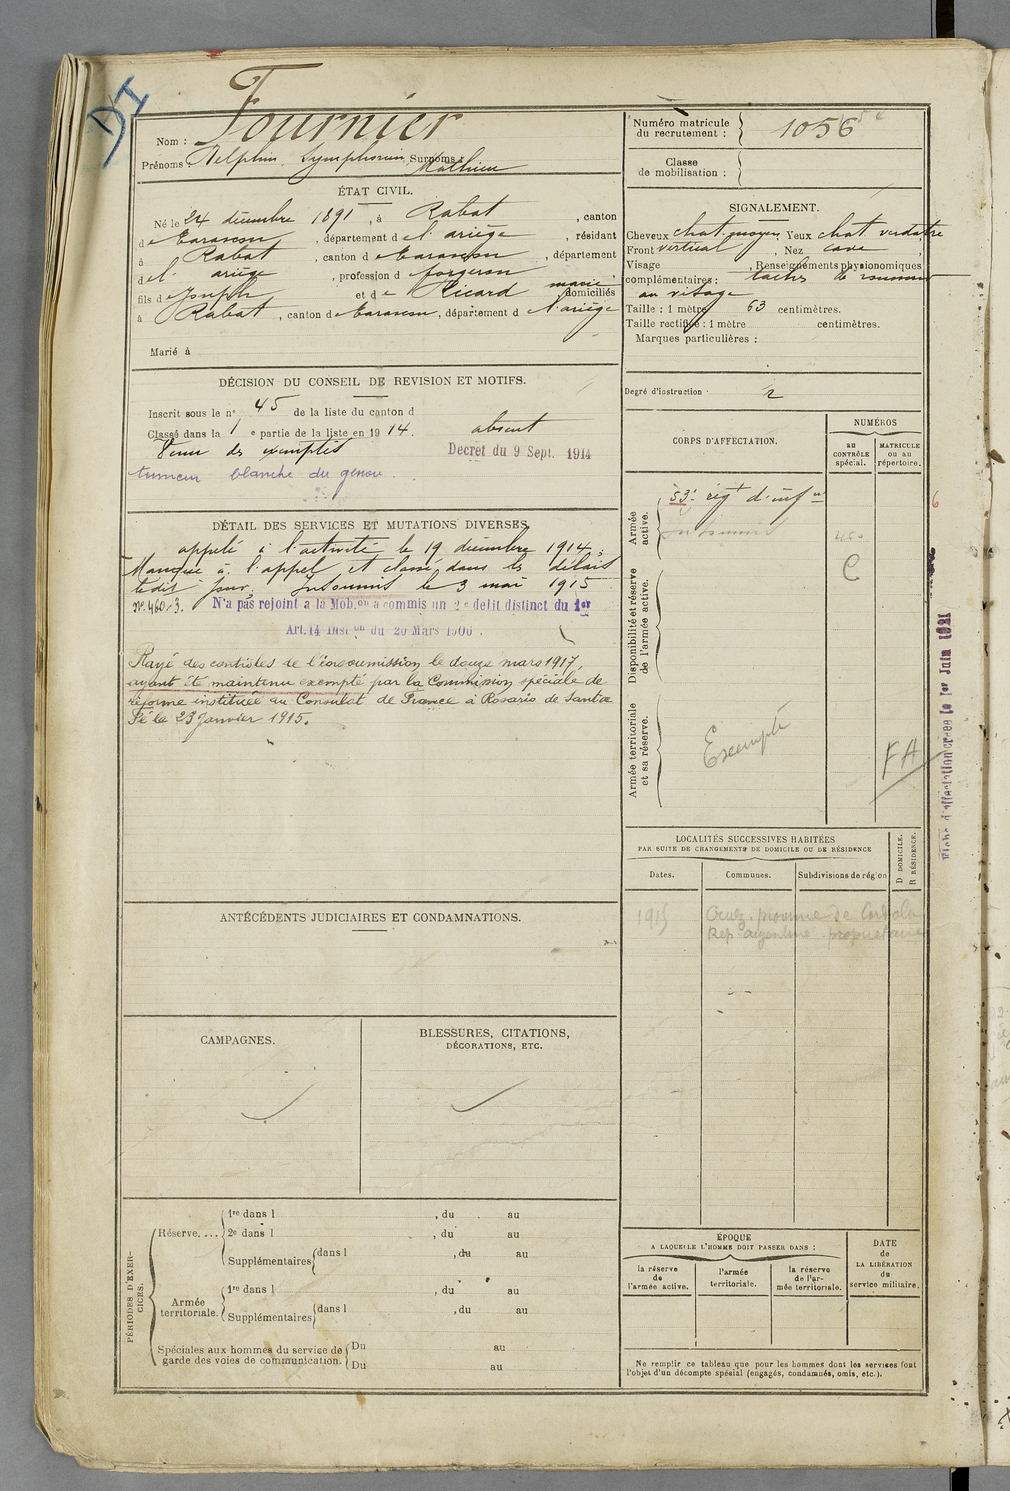 DI
Nom : Fournier
Prénoms : Delphin Symphorien Surnoms : Mathieu
ÉTAT CIVIL.
Né le 24 décembre 1891, à Rabat, canton
de Tarascon, département de l'ariège, résidant
à Rabat, canton de Tarascon, département
de l' ariège, profession d forgeron,
fils de Joseph et de Ricard marie domiciliés
à Rabat, canton de Tarascon, département d l'ariège
Marié à
DÉCISION DU CONSEIL DE REVISION ET MOTIFS.
Inscrit sous le n° 45 de la liste du canton d
Classé dans la 1 e partie de la liste en 1914. absent
Venu des exemptés Décret du 9 Sept. 1914
tumeur blanche du genou.
DÉTAIL DES SERVICES ET MUTATIONS DIVERSES.
appelé à l'activité le 19 décembre 1914;
Manque à l'appel et classé dans les délais
ledit jour. Insoumis le 3 mai 1915
N° 460-3. N'a pas rejoint a la Mob.on a commis un 2e delit distinct du 1er
Art.14 Inst on du 20 Mars 1906.
Rayé des contrôles de l'insoumission le douze mars 1917,
ayant été maintenu exempté par la Commission spéciale de
réforme instituée au Consulat de France à Rosario de Santa
Fé le 23 Janvier 1915.
ANTÉCÉDENTS JUDICIAIRES ET CONDAMNATIONS.
CAMPAGNES.
BLESSURES, CITATIONS,
DÉCORATIONS, ETC.
PÉRIODES D'EXERCICES.
Réserve....
1re dans l , du au
2e dans l , du au
Supplémentaires dans l , du au
Armée territoriale.
1re dans l , du au
Supplémentaires dans l , du au
Spéciales aux hommes du service de garde des voies de communication.
Du au
Du au
Numéro matricule du recrutement : 1056
Classe de mobilisation :
SIGNALEMENT.
Cheveux chat. moyen, Yeux chat verdâtre
Front vertical, Nez cave,
Visage , Renseignements physionomiques
complémentaires : taches de rousseur
au visage
Taille : 1 mètre 63 centimètres.
Taille rectifiée : 1 mètre centimètres.
Marques particulières :
Degré d'instruction : 2
CORPS D'AFFECTATION.
NUMÉROS
au CONTRÔLE spécial.
MATRICULE ou au répertoire.
Armée active.
53e régt d'infie
insoumis
460
C
Disponibilité et réserve de l'armée active.
Armée territoriale et sa réserve.
Exempté
FA
6
Fiche d'affectation créée le 1er Juin 1921
LOCALITÉS SUCCESSIVES HABITÉES
PAR SUITE DE CHANGEMENTS DE DOMICILE OU DE RÉSIDENCE
D DOMICILE.
R RÉSIDENCE.
Dates.
Communes.
Subdivisions de région
1915 Cruz. province de Cordoba
Rep. argentine propriétaire
ÉPOQUE
A LAQUELLE L'HOMME DOIT PASSER DANS :
la réserve de l'armée active.
l'armée territoriale.
la réserve de l'armée territoriale.
DATE de LA LIBÉRATION du service militaire.
Ne remplir ce tableau que pour les hommes dont les services font
l'objet d'un décompte spécial (engagés, condamnés, omis, etc.).